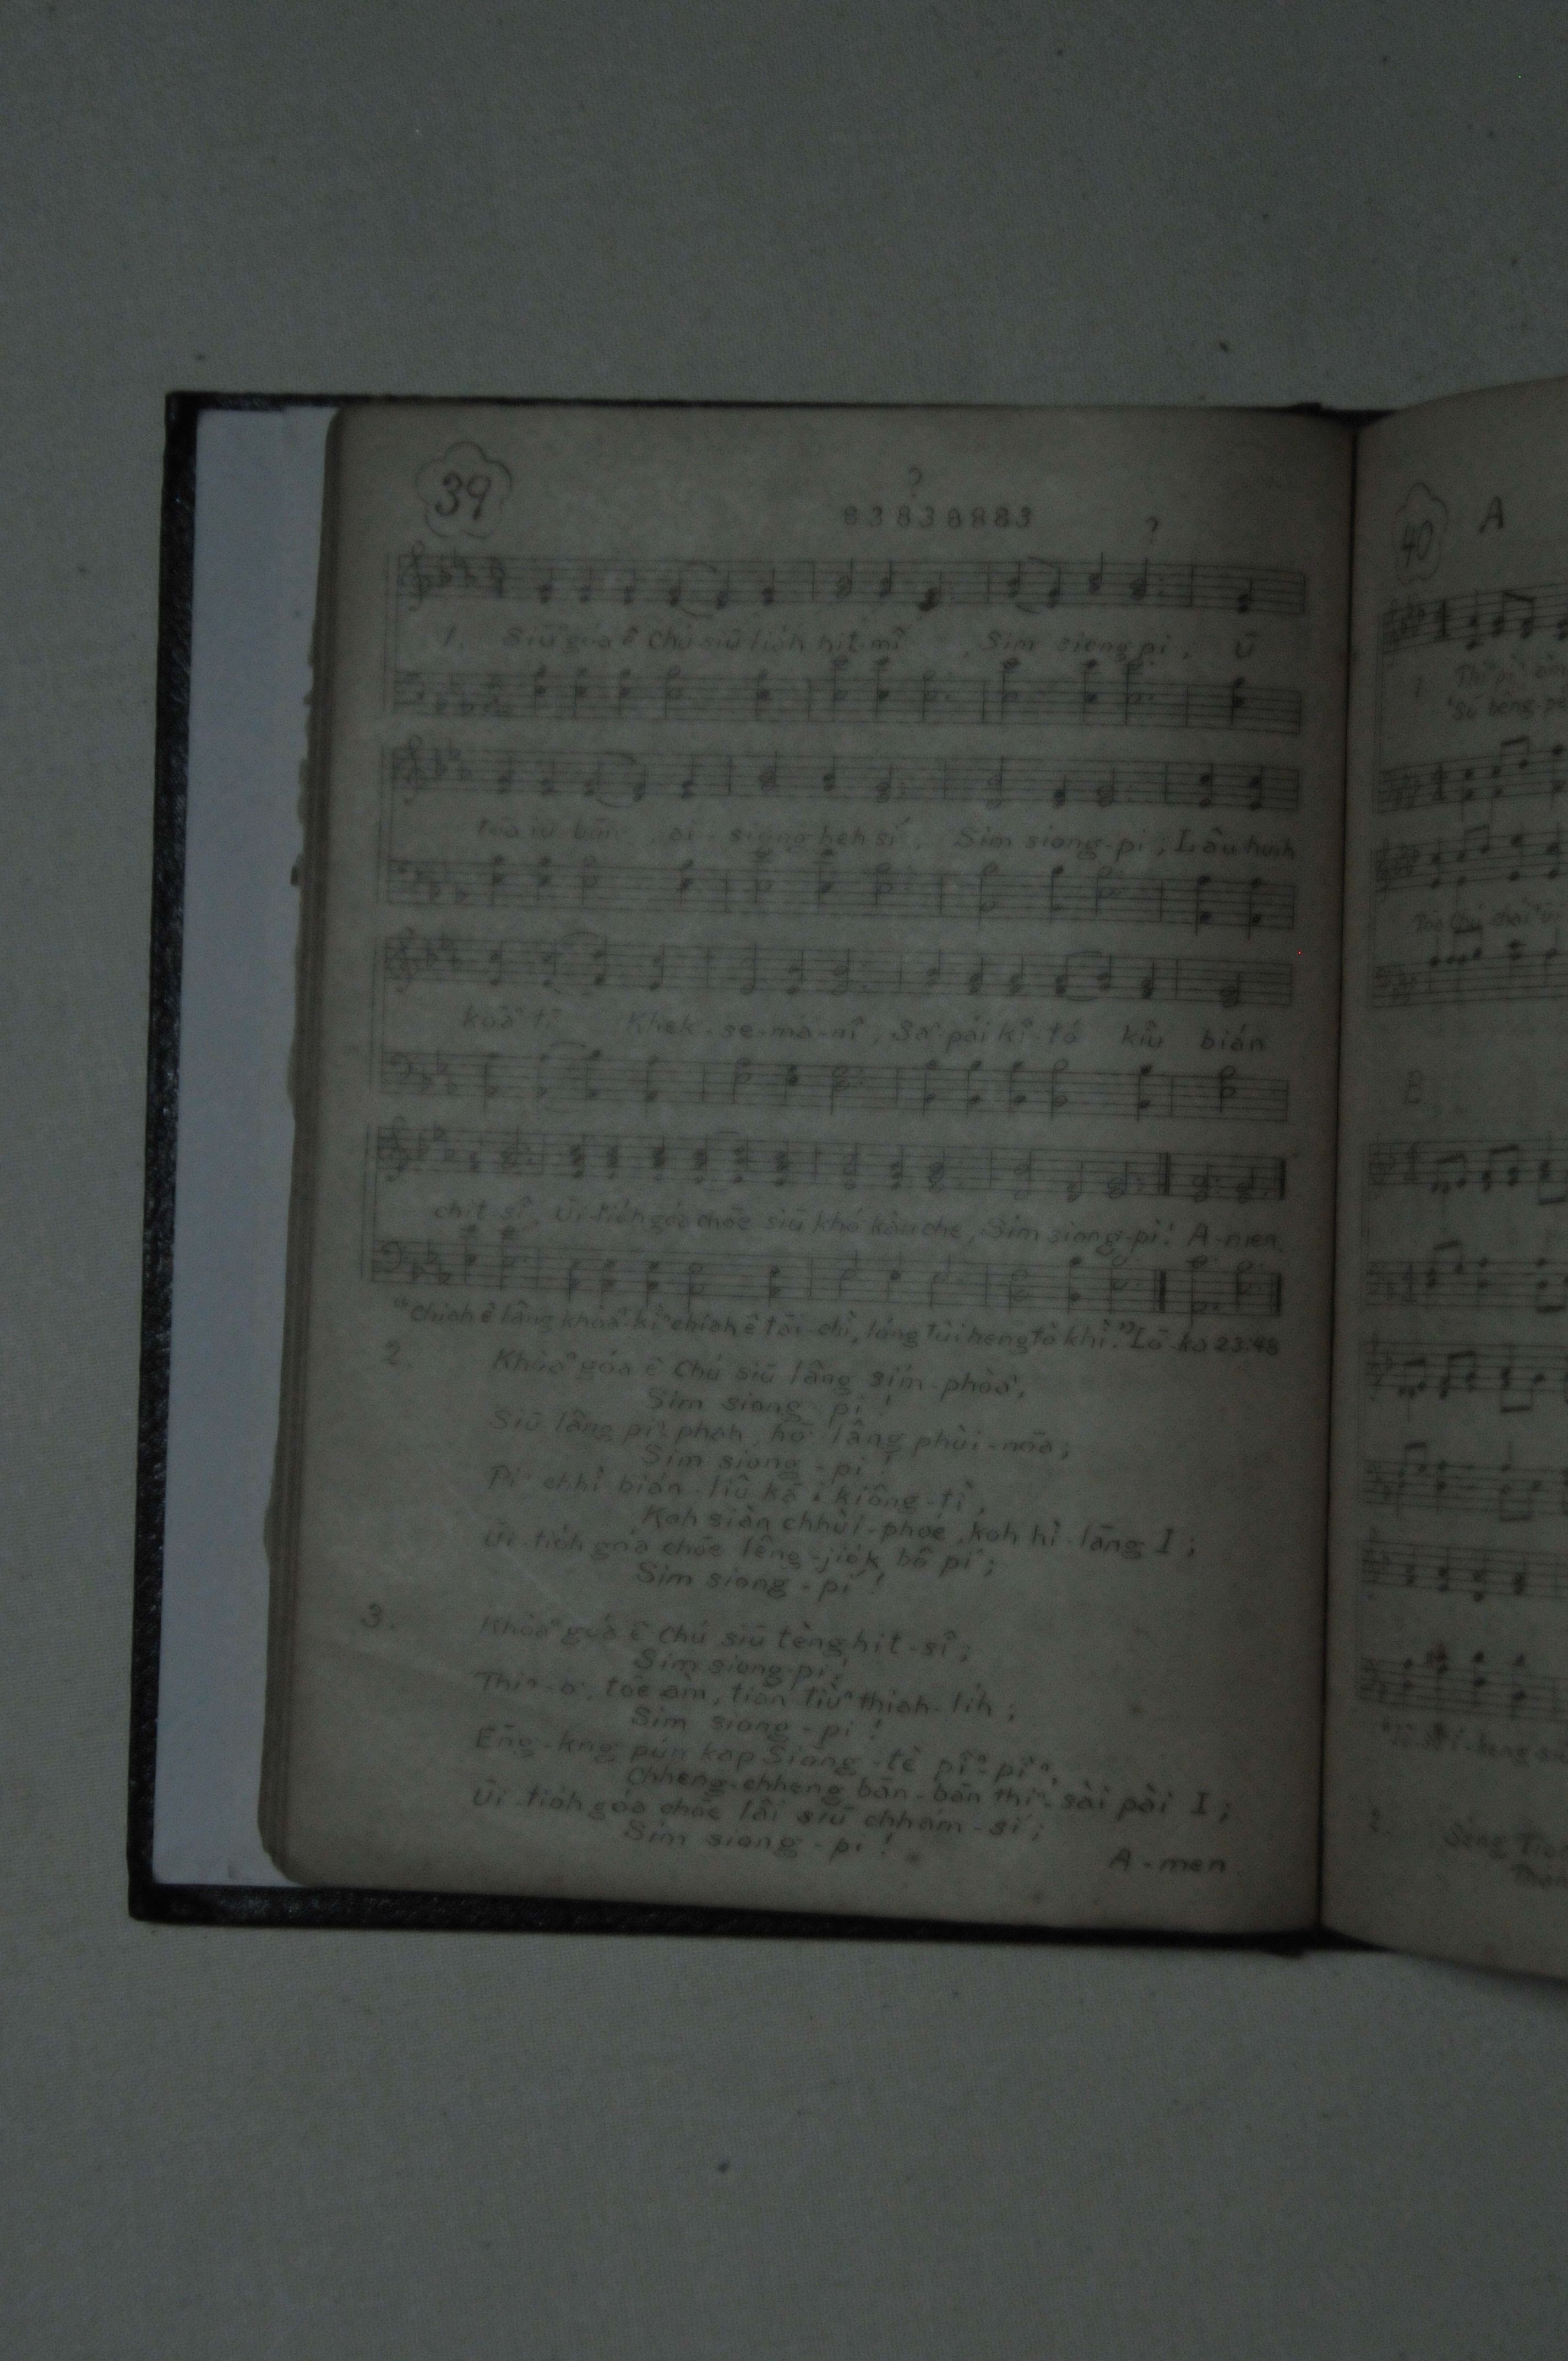 39
?
83838883
?
1. Siūⁿ góa ê Chú siū lia̍h hit mî, Sim siong pi, Ū
toā iu būn, ai siong beh sí, Sim siong-pi; Lâu huih
koāⁿ tī Khek-se-má-nî, Saⁿ pái kî-tó kiû bián
chit sî, Ūi-tio̍h góa chōe siū khó͘ kàu che, Sim siong-pi! A-men.
"Chiah ê lâng khòaⁿ-kìⁿ chiah ê tāi-chì, lóng tùi heng tò khì." Lō͘-ka 23:48
2. Khòaⁿ góa ê Chú siū lâng sím-phòaⁿ,
Sim siong-pi!
Siū lâng piⁿ phah, hō͘ lâng phùi-nōa;
Sim siong-pi!
Pi-chhì bián-liû kā i kiông-tì,
Koh siàn chhùi-phoé, koh hì-lāng I;
Ūi-tio̍h góa chōe lêng-jio̍k bô pí;
Sim siong-pi!
3. Khòaⁿ góa ê Chú siū tèng hit-sî;
Sim siong-pi!
Thiⁿ-o͘, tōe àm, tiān tiùⁿ thiah-li̍h;
Sim siong-pi!
Éng-kng pún kap Siāng-tè pîⁿ-pîⁿ,
Chheng-chheng bān-bān thiⁿ-sài pài I;
Ūi-tio̍h góa chōe lâi siū chhám-sí;
Sim siong-pi!
A-men
40 A
1.
B.
2.